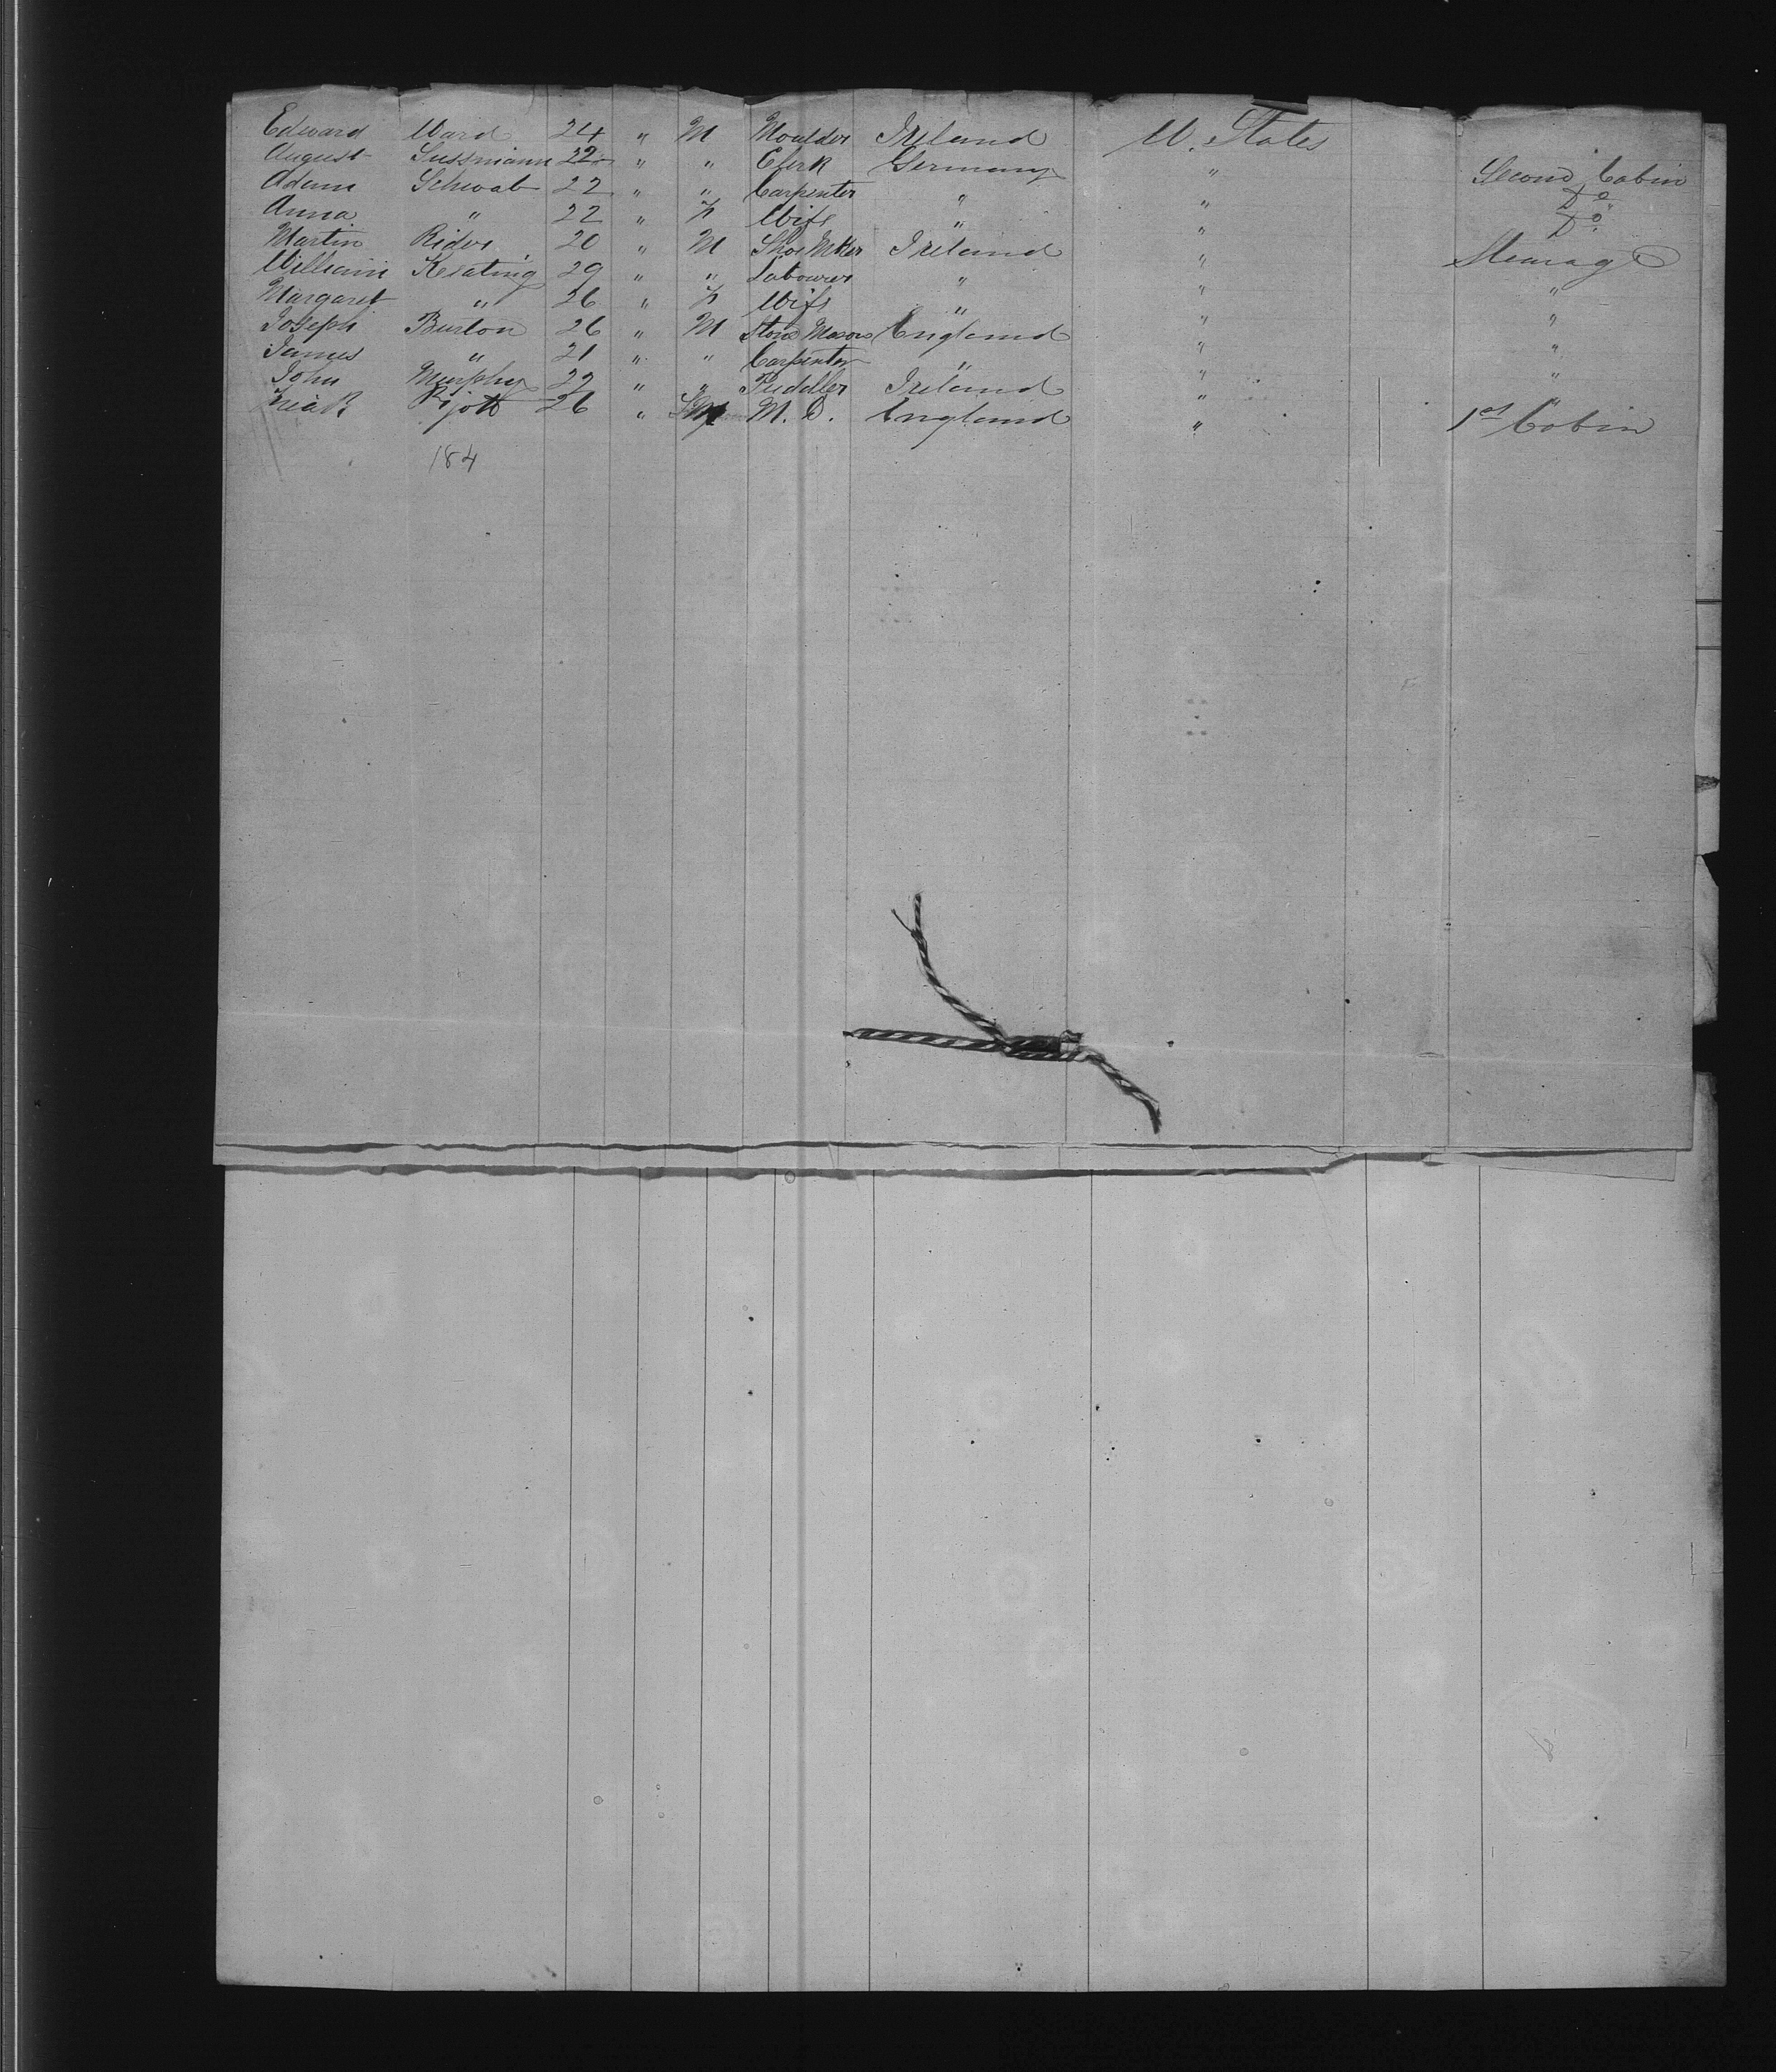 Edward Ward 24 " M Moulder Ireland U. States
August Sussmann 22 " " Clerk Germany " Second Cabin
Adam Schwab 22 " " Carpenter " " Do
Anna " 22 " F Wife " " Do
Martin Rider 20 " M Shoe Mker Ireland " Steerage
William Keating 29 " " Labourer " " "
Margaret " 26 " F Wife " " "
Joseph Burton 26 " M Stone Mason England " "
James " 21 " " Carpenter " " "
John Murphy 22 " " Puddler Ireland " "
26 " M. D. England " 1st Cabin
184